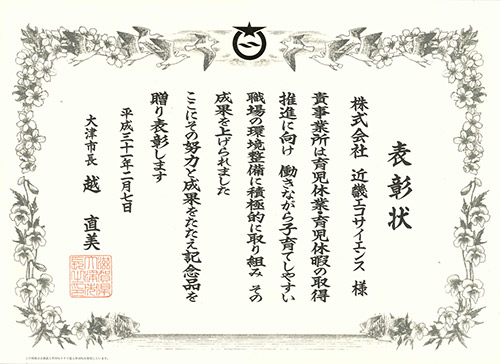 表彰状
株式会社 近畿エコサイエンス 様
貴事業所は育児休業・育児休暇の取得
推進に向け 働きながら子育てしやすい
職場の環境整備に積極的に取り組み その
成果を上げられました
ここにその努力と成果をたたえ記念品を
贈り表彰します
平成三十一年二月七日
大津市長 越 直美